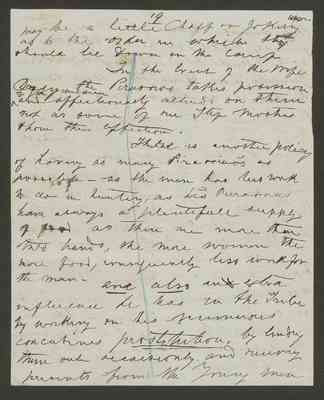 19
may be a little Chaff or Joking
as to the order in which they
should lie down in the Camp
In the event of the Wife
the Piraooroo takes possession
and affectionately attends on them
not as some of our Step Mothers
show their affection.
There is another policy
of having as many Piraooroos as
possible — as the man has less work
to do in hunting, as his Piraooroos
have always a plentifull supply
of food as there are more
hands, the more women the
more food, consequently less work for
the man — and also extra
influence he has in the Tribe
by working on his numerous
concubines prostitution, by lending
them out occasionally, and receiving
presents from the Young men